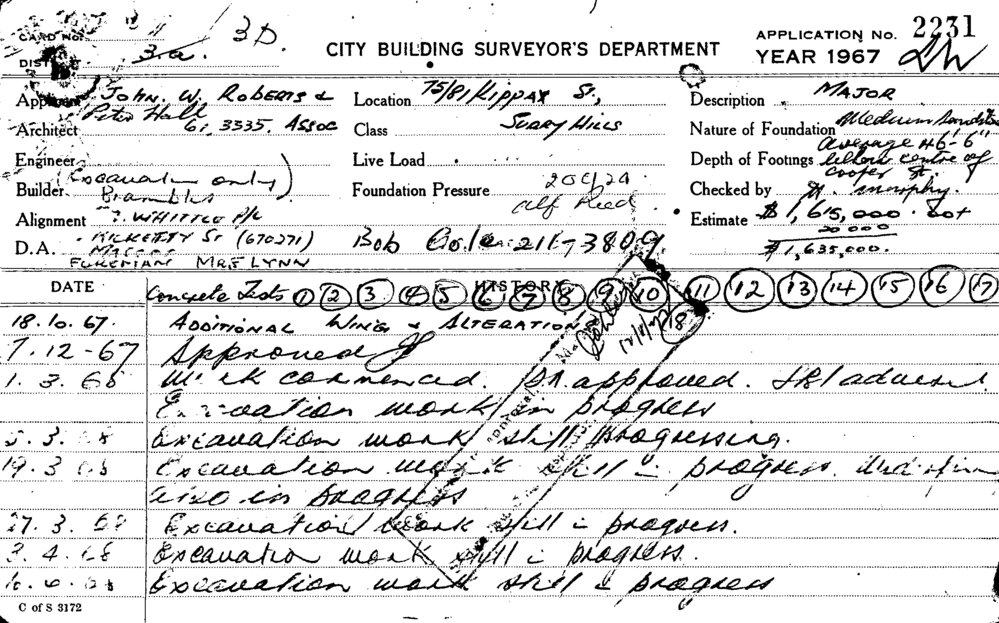 CARD No.
3.a. 3D.
DIST
CITY BUILDING SURVEYOR'S DEPARTMENT
APPLICATION No. 2231
YEAR 1967
JOHN. W. ROBERTS &
Peter Hall
Architect 61.3335. Assoc
Engineer
(Excavation only)
Builder Brambles
Alignment ?. WHITTLE P/L
RICKETTY St (670271)
D.A. MASCOT
FOREMAN MR FLYNN
Location 75/81 Kippax St,
Class SURRY HILLS
Live Load
Foundation Pressure
Alf Reed
Bob
Description MAJOR
Nature of Foundation Medium Sandstone
Average 46'-6"
Depth of Footings below centre of
Cooper St.
Checked by murphy.
Estimate $1,615,000. Bot
20 000
$1,635,000.
DATE HISTORY
Concrete Tests 1 2 3 4 5 6 7 8 9 10 11 12 13 14 15 16 17
18
18.10.67. ADDITIONAL WING & ALTERATION
7.12-67 Approved
1.3.68 Work commenced. approved.
Excavation work in progress
5.3.68 Excavation work still progressing.
19.3.68 Excavation work still in progress.
also in progress
27.3.68 Excavation work still in progress.
3.4.68 Excavation work still in progress.
Excavation work still in progress
C of S 3172